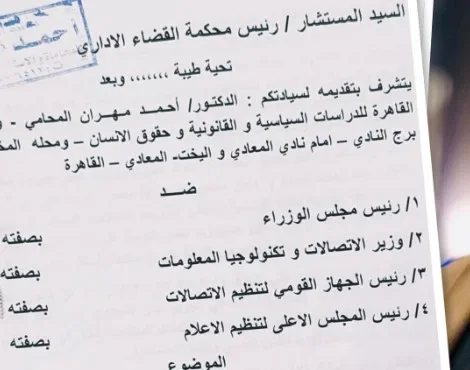 أحمد
السيد المستشار / رئيس محكمة القضاء الاداري
تحية طيبة ،،،،،،، وبعد
يتشرف بتقديمه لسيادتكم : الدكتور/ أحمد مهران المحامي -
القاهرة للدراسات السياسية و القانونية و حقوق الانسان – ومحله
برج النادي – امام نادي المعادي و اليخت- المعادي – القاهرة
ضد
١/ رئيس مجلس الوزراء بصفته
٢/ وزير الاتصالات و تكنولوجيا المعلومات بصفته
٣/ رئيس الجهاز القومي لتنظيم الاتصالات بصفته
٤/ رئيس المجلس الاعلى لتنظيم الاعلام بصفته
الموضوع